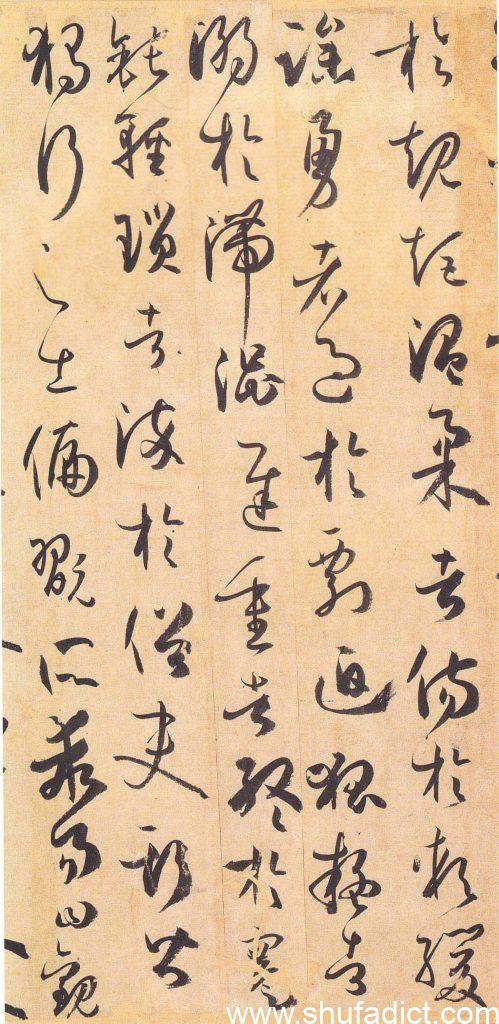 於規矩溫柔者傷於軟緩
躁勇者過於剽迫狐疑者
溺於滯澀遲重者終於蹇
鈍輕瑣者染於俗吏斯皆
獨行之士偏翫所乖易曰觀
www.shufadict.com